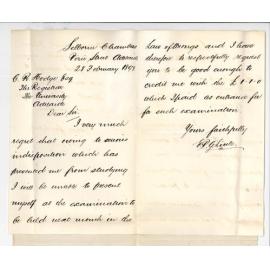 Selborne Chambers
Pirie Street Adelaide
28 February 1898
C. R. Hodge Esq
The Registrar
The University
Adelaide
Dear Sir
I very much
regret that owing to severe
indisposition which has
prevented me from studying
I will be unable to present
myself at the examination to
be held next month in the
Law of Wrongs and I have
therefore to respectfully request
you to be good enough to
credit me with the £1-1-0
which I paid as entrance fee
for such examination
Yours faithfully